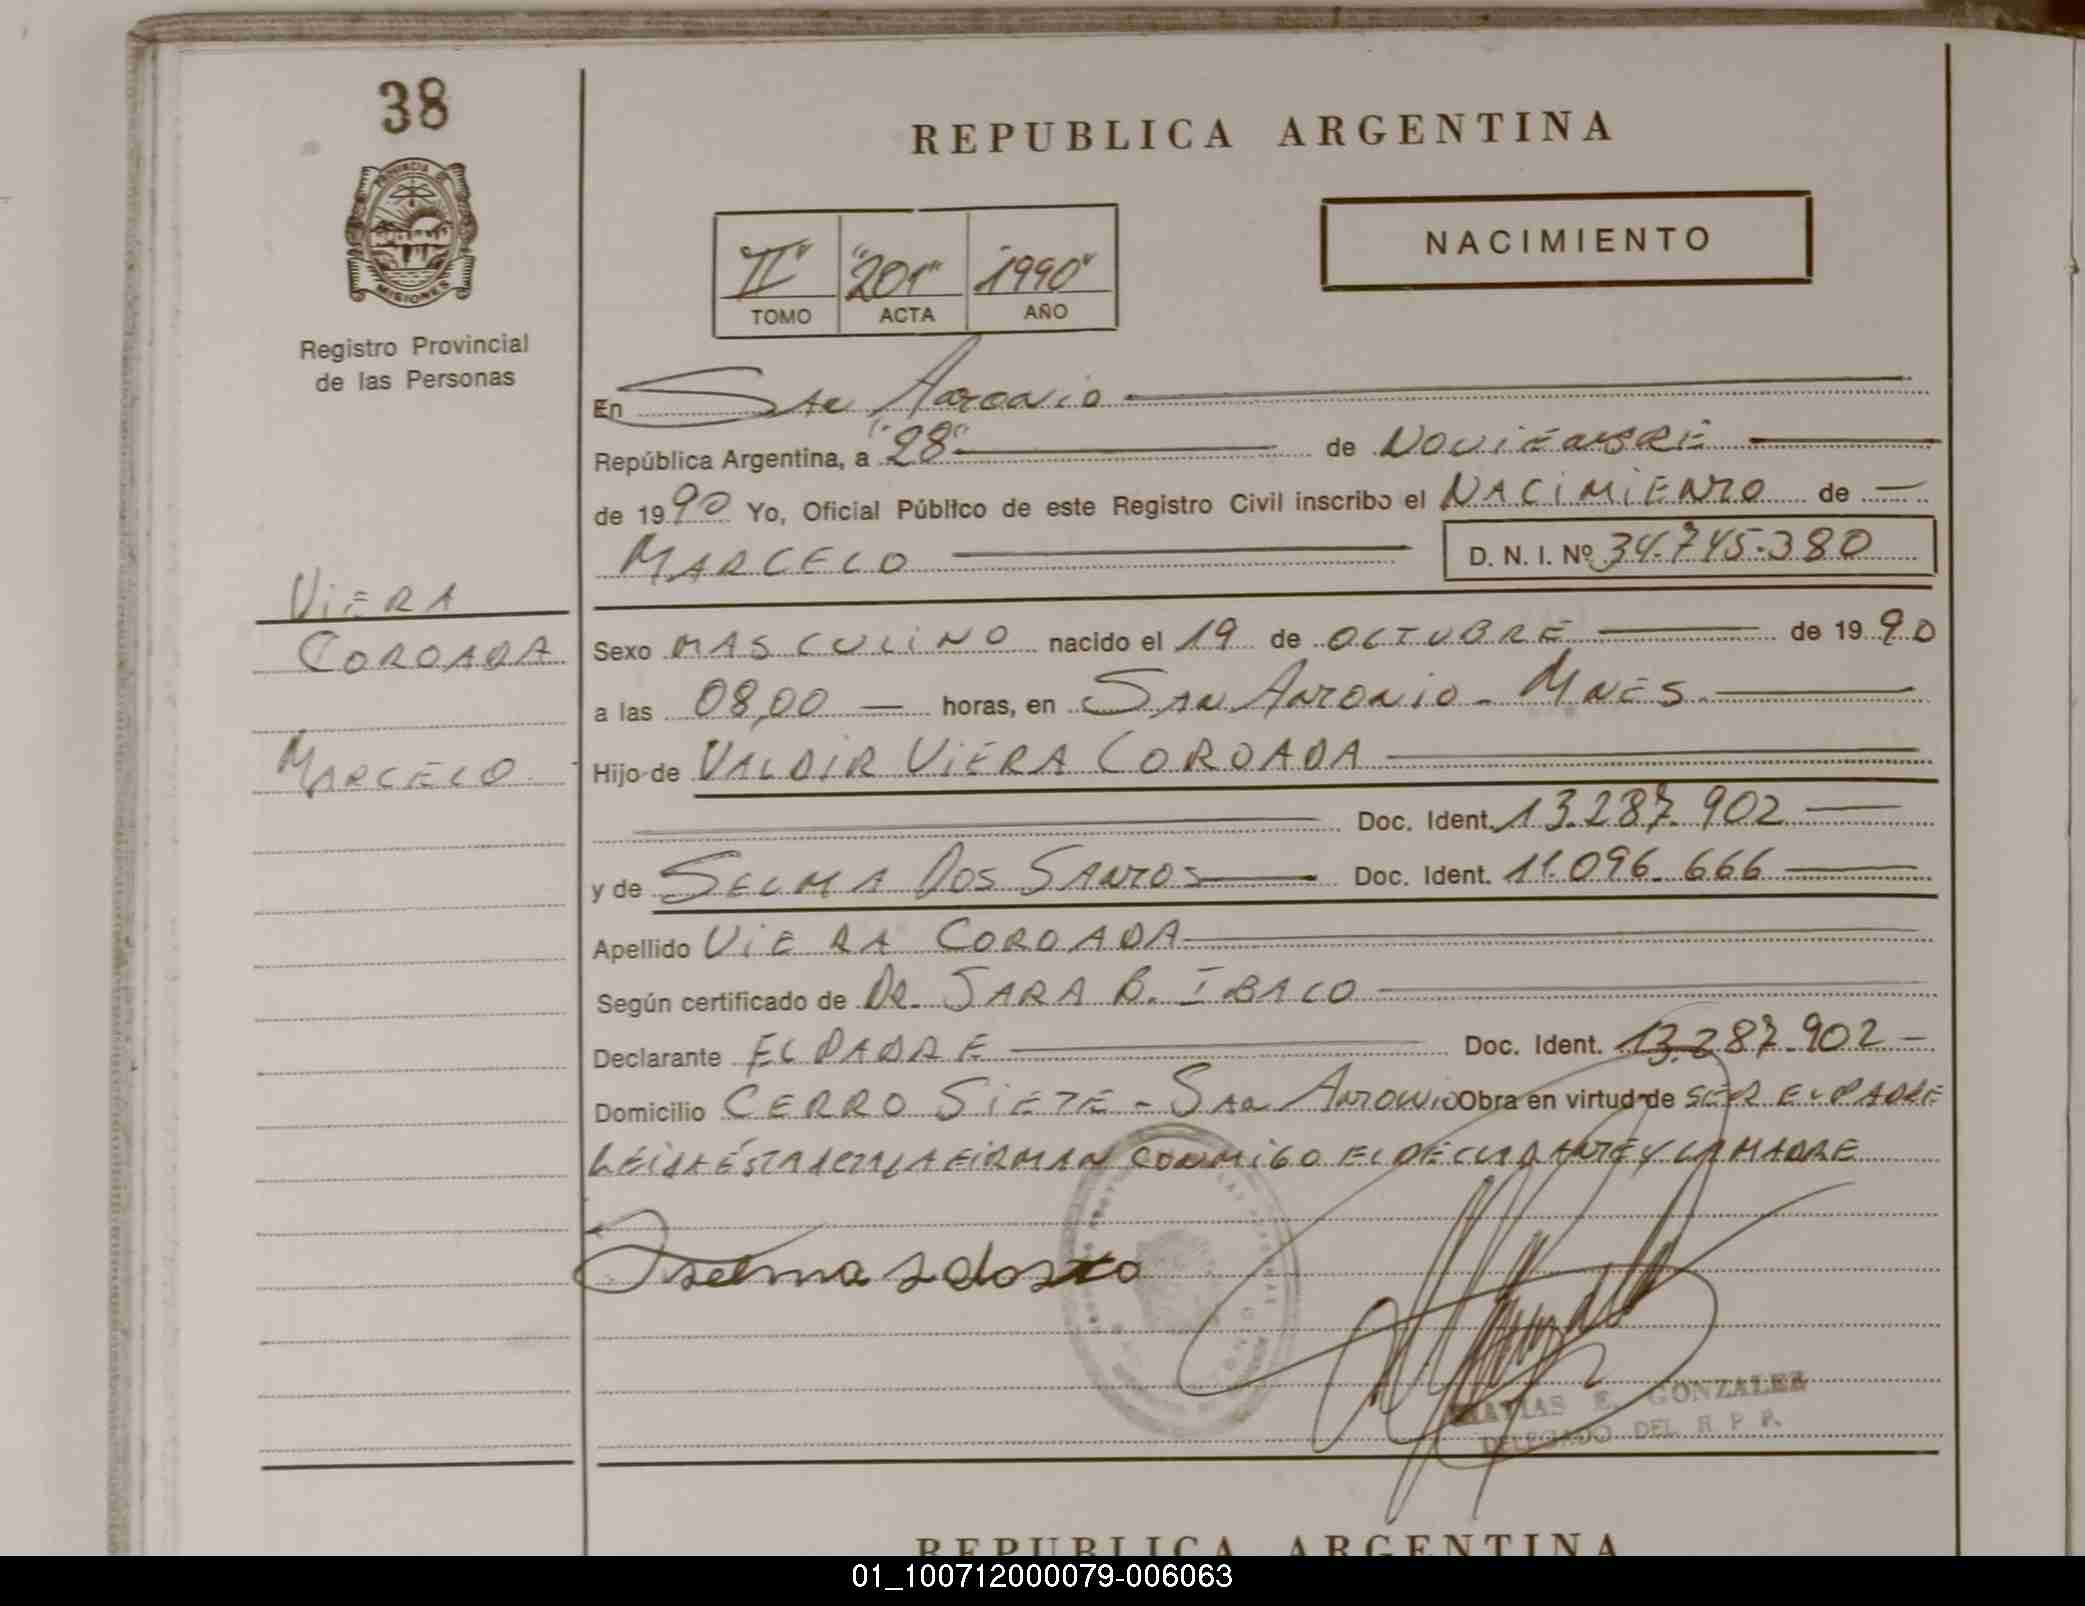 38
PROVINCIA DE
MISIONES
Registro Provincial
de las Personas
VIERA
COROADA
MARCELO
REPUBLICA ARGENTINA
NACIMIENTO
"II" "201" "1990"
TOMO ACTA AÑO
En San Antonio
República Argentina, a "28" de NOVIEMBRE
de 1990 Yo, Oficial Público de este Registro Civil inscribo el NACIMIENTO de
MARCELO D. N. I. Nº 34.745.380
Sexo MASCULINO nacido el 19 de OCTUBRE de 1990
a las 08,00 horas, en SAN ANTONIO - MNES.
Hijo de VALDIR VIERA COROADA
Doc. Ident. 13.287.902
y de SELMA DOS SANTOS Doc. Ident. 11.096.666
Apellido VIERA COROADA
Según certificado de DR. SARA B. IBALO
Declarante EL PADRE Doc. Ident. 13.287.902
Domicilio CERRO SIETE - San ANTONIO Obra en virtud de SER EL PADRE
LEIDA ESTA ACTA LA FIRMAN CONMIGO EL DECLARANTE Y LA MADRE
selma
MATIAS E. GONZALEZ
DELEGADO DEL R. P. P.
REPUBLICA ARGENTINA
01_100712000079-006063